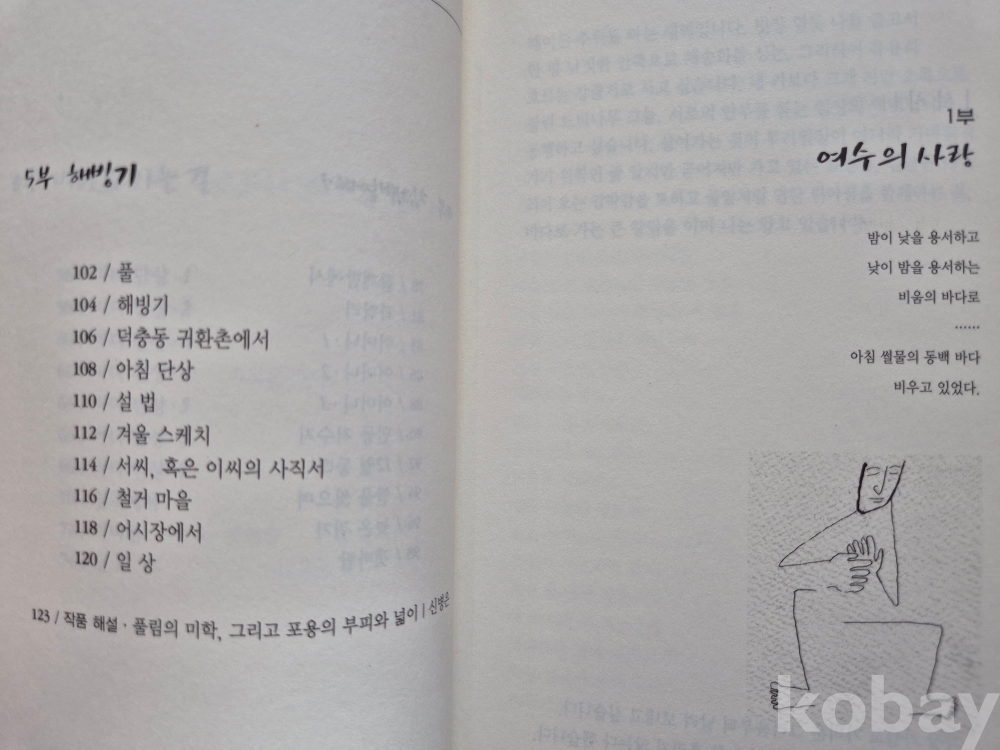 5부 해빙기
102 / 풀
104 / 해빙기
106 / 덕충동 귀환촌에서
108 / 아침 단상
110 / 설 법
112 / 겨울 스케치
114 / 서씨, 혹은 이씨의 사직서
116 / 철거 마을
118 / 어시장에서
120 / 일 상
123 / 작품 해설 · 풀림의 미학, 그리고 포용의 부피와 넓이 | 신병은
1부
여수의 사랑
밤이 낮을 용서하고
낮이 밤을 용서하는
비움의 바다로
……
아침 썰물의 동백 바다
비우고 있었다.
kobay